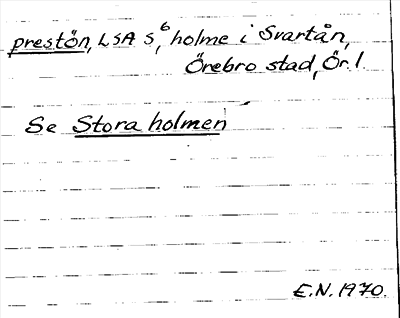 prestön, LSA S⁶, holme i Svartån,
Örebro stad, Ör. l.
Se Stora holmen
E.N. 1970.